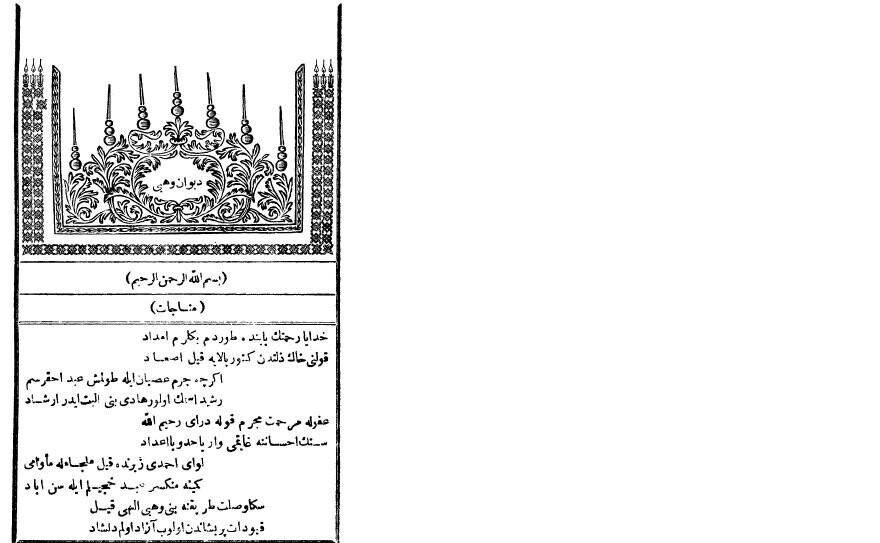 ديوان وهبى
(بسم الله الرحمن الرحيم)
(مناجات)
خدايا رحمتك يابنده طوردم بكلرم امداد
قولنى خاك ذلتدن كشور بالايه قيل اصعاد
اكرچه جرم عصيان ايله طولمش عبد احقرسم
رشيد اسمك اولور هادى بنى البت ايدر ارشاد
عفوله مرحمت مجرم قوله دراى رحيم الله
سنك احساننه غايتمى وار ياحد ويا اعداد
لواى احمدى زيرنده قيل ملجا له مأوامى
كمينه منكسر عبد ايله سن اباد
سكا وصلت طريقنه بنى وهبى الهى قيل
قيودات پريشاندن اولوب آزاد اولم دلشاد